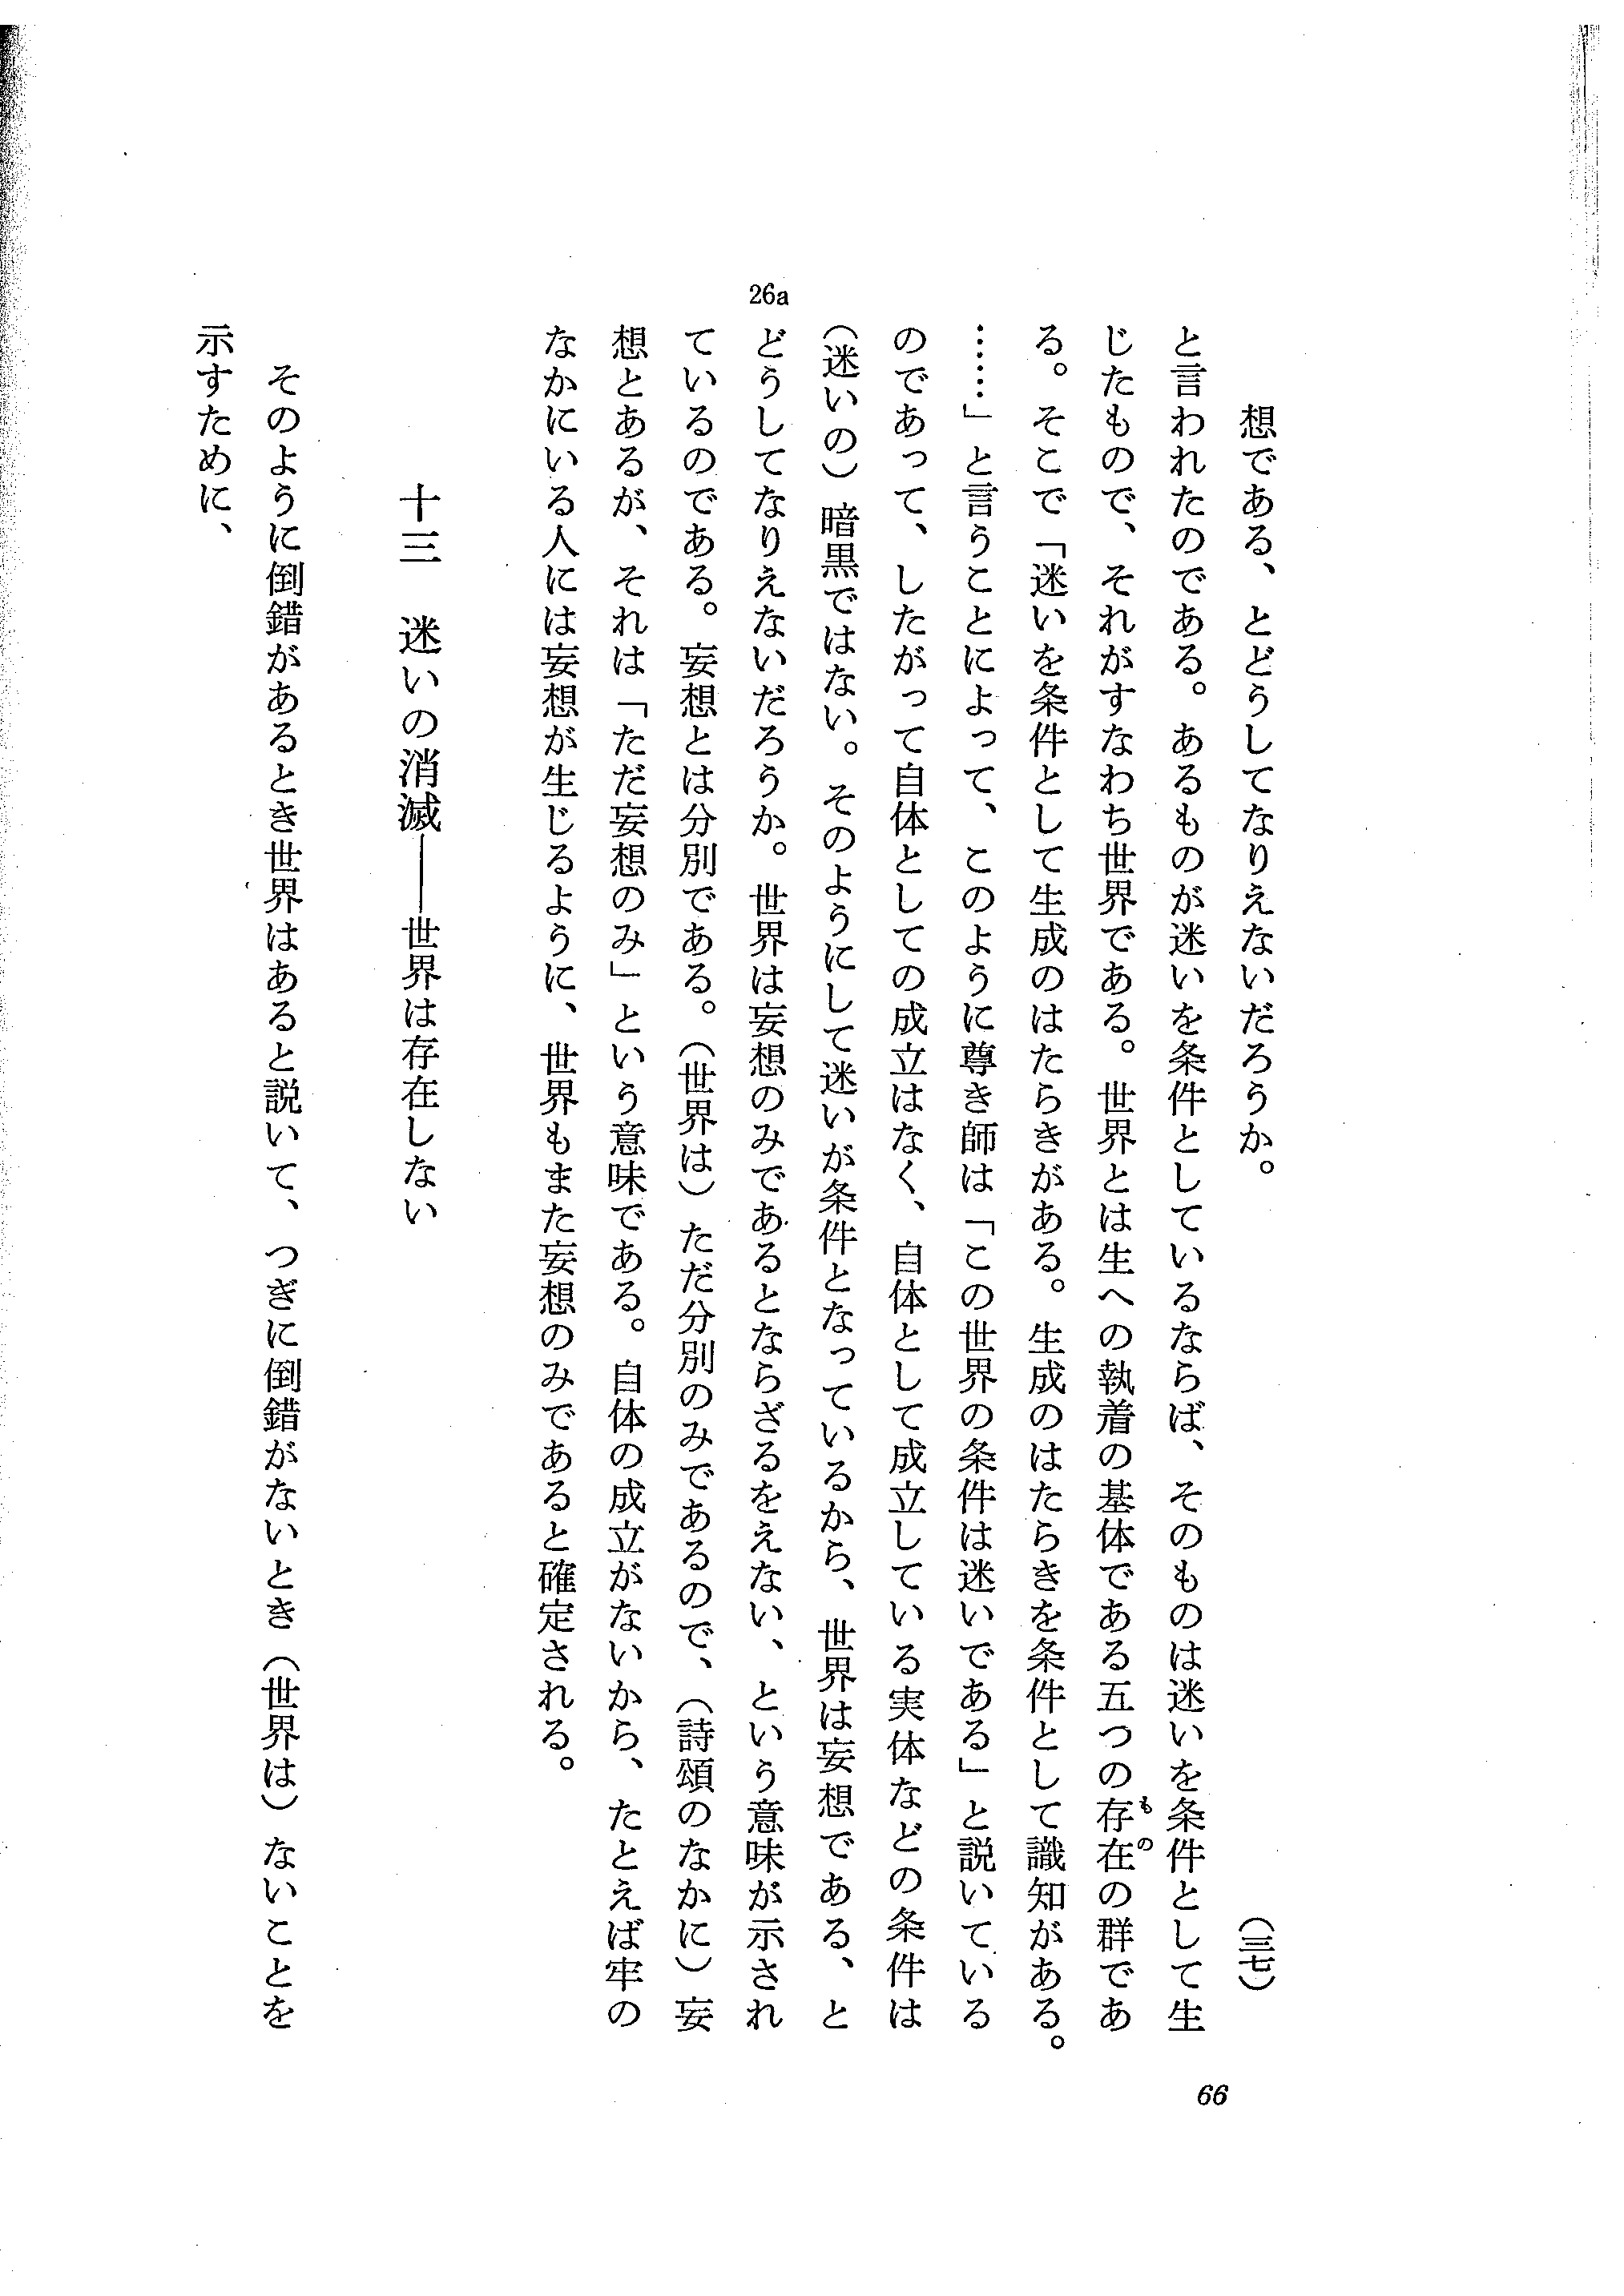 想である、とどうしてなりえないだろうか。（三七）
と言われたのである。あるものが迷いを条件としているならば、そのものは迷いを条件として生
じたもので、それがすなわち世界である。世界とは生への執着の基体である五つの存在の群であ
もの
る。そこで「迷いを条件として生成のはたらきがある。生成のはたらきを条件として識知がある。
……」と言うことによって、このように尊き師は「この世界の条件は迷いである」と説いている
のであって、したがって自体としての成立はなく、自体として成立している実体などの条件は
（迷いの）暗黒ではない。そのようにして迷いが条件となっているから、世界は妄想である、と
26a
どうしてなりえないだろうか。世界は妄想のみであるとならざるをえない、という意味が示され
ているのである。妄想とは分別である。（世界は）ただ分別のみであるので、（詩頌のなかに）妄
想とあるが、それは「ただ妄想のみ」という意味である。自体の成立がないから、たとえば牢の
なかにいる人には妄想が生じるように、世界もまた妄想のみであると確定される。
十三　迷いの消滅――世界は存在しない
そのように倒錯があるとき世界はあると説いて、つぎに倒錯がないとき（世界は）ないことを
示すために、
66